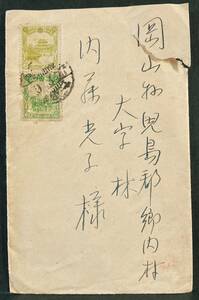 岡山縣児島郡郷内村
大字林
内藤光子様